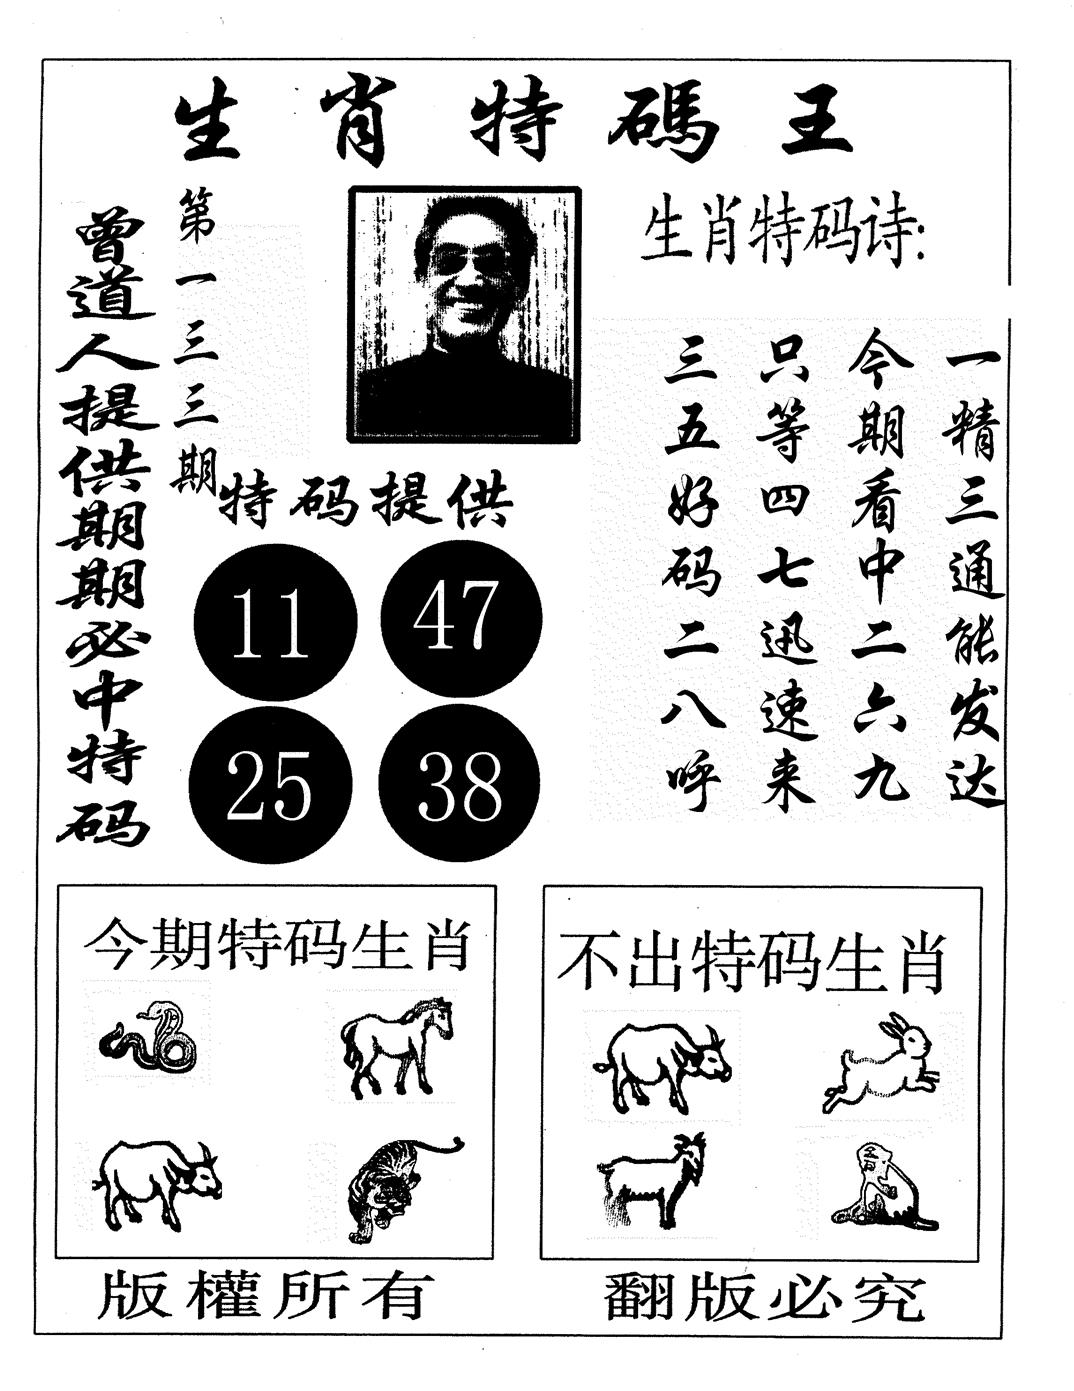 生肖特碼王
曾道人提供期期必中特码
第一三三期
生肖特码诗:
一精三通能发达
今期看中二六九
只等四七迅速来
三五好码二八呼
特码提供
11 47
25 38
今期特码生肖
不出特码生肖
版權所有
翻版必究